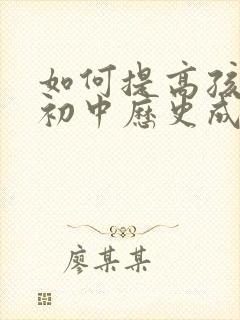 如何提高孩
初中历史成
廖某某